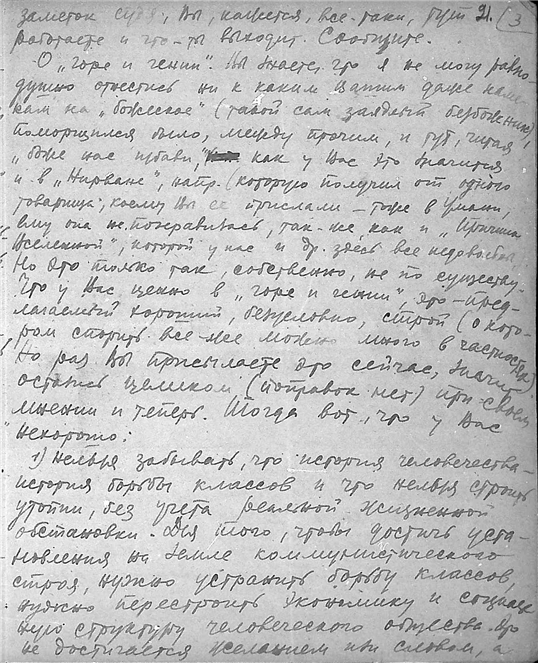 заметок судя, Вы, кажется, все-таки, тут 21. (3
работаете и что-то выходит. Сообщите.
О „горе и гении". Вы знаете, что я не могу равно-
душно отнестись ни к каким Вашим даже наме-
кам на „божеское" (такой сам заядлый безбожник),
поморщился было, между прочим, и тут, читая
„боже нас избави," как у Вас это значится
и в „Нирване", напр. (которую получил от одного
товарища, коему Вы ее прислали – тоже в Умани,
ему она не понравилась, так-же как и „Причина
Вселенной", которой у нас и др. здесь все недовольны).
Но это только так, собственно, не по существу.
Что у Вас ценно в „горе и гении", это – пред-
лагаемый хороший, безусловно, строй (о кото-
ром спорить все-же можно много в частностях)
Но раз Вы присылаете это сейчас, значит
остались целиком (поправок нет) при своем
мнении и теперь. Тогда вот, что у Вас
нехорошо:
1) нельзя забывать, что история человечества –
история борьбы классов и что нельзя строить
утопии, без учета реальной жизненной
обстановки. Для того, чтобы достичь уста-
новления на земле коммунистического
строя, нужно устранить борьбу классов,
нужно перестроить экономику и социаль
ную структуру человеческого общества. Это
не достигается желанием или словом, а